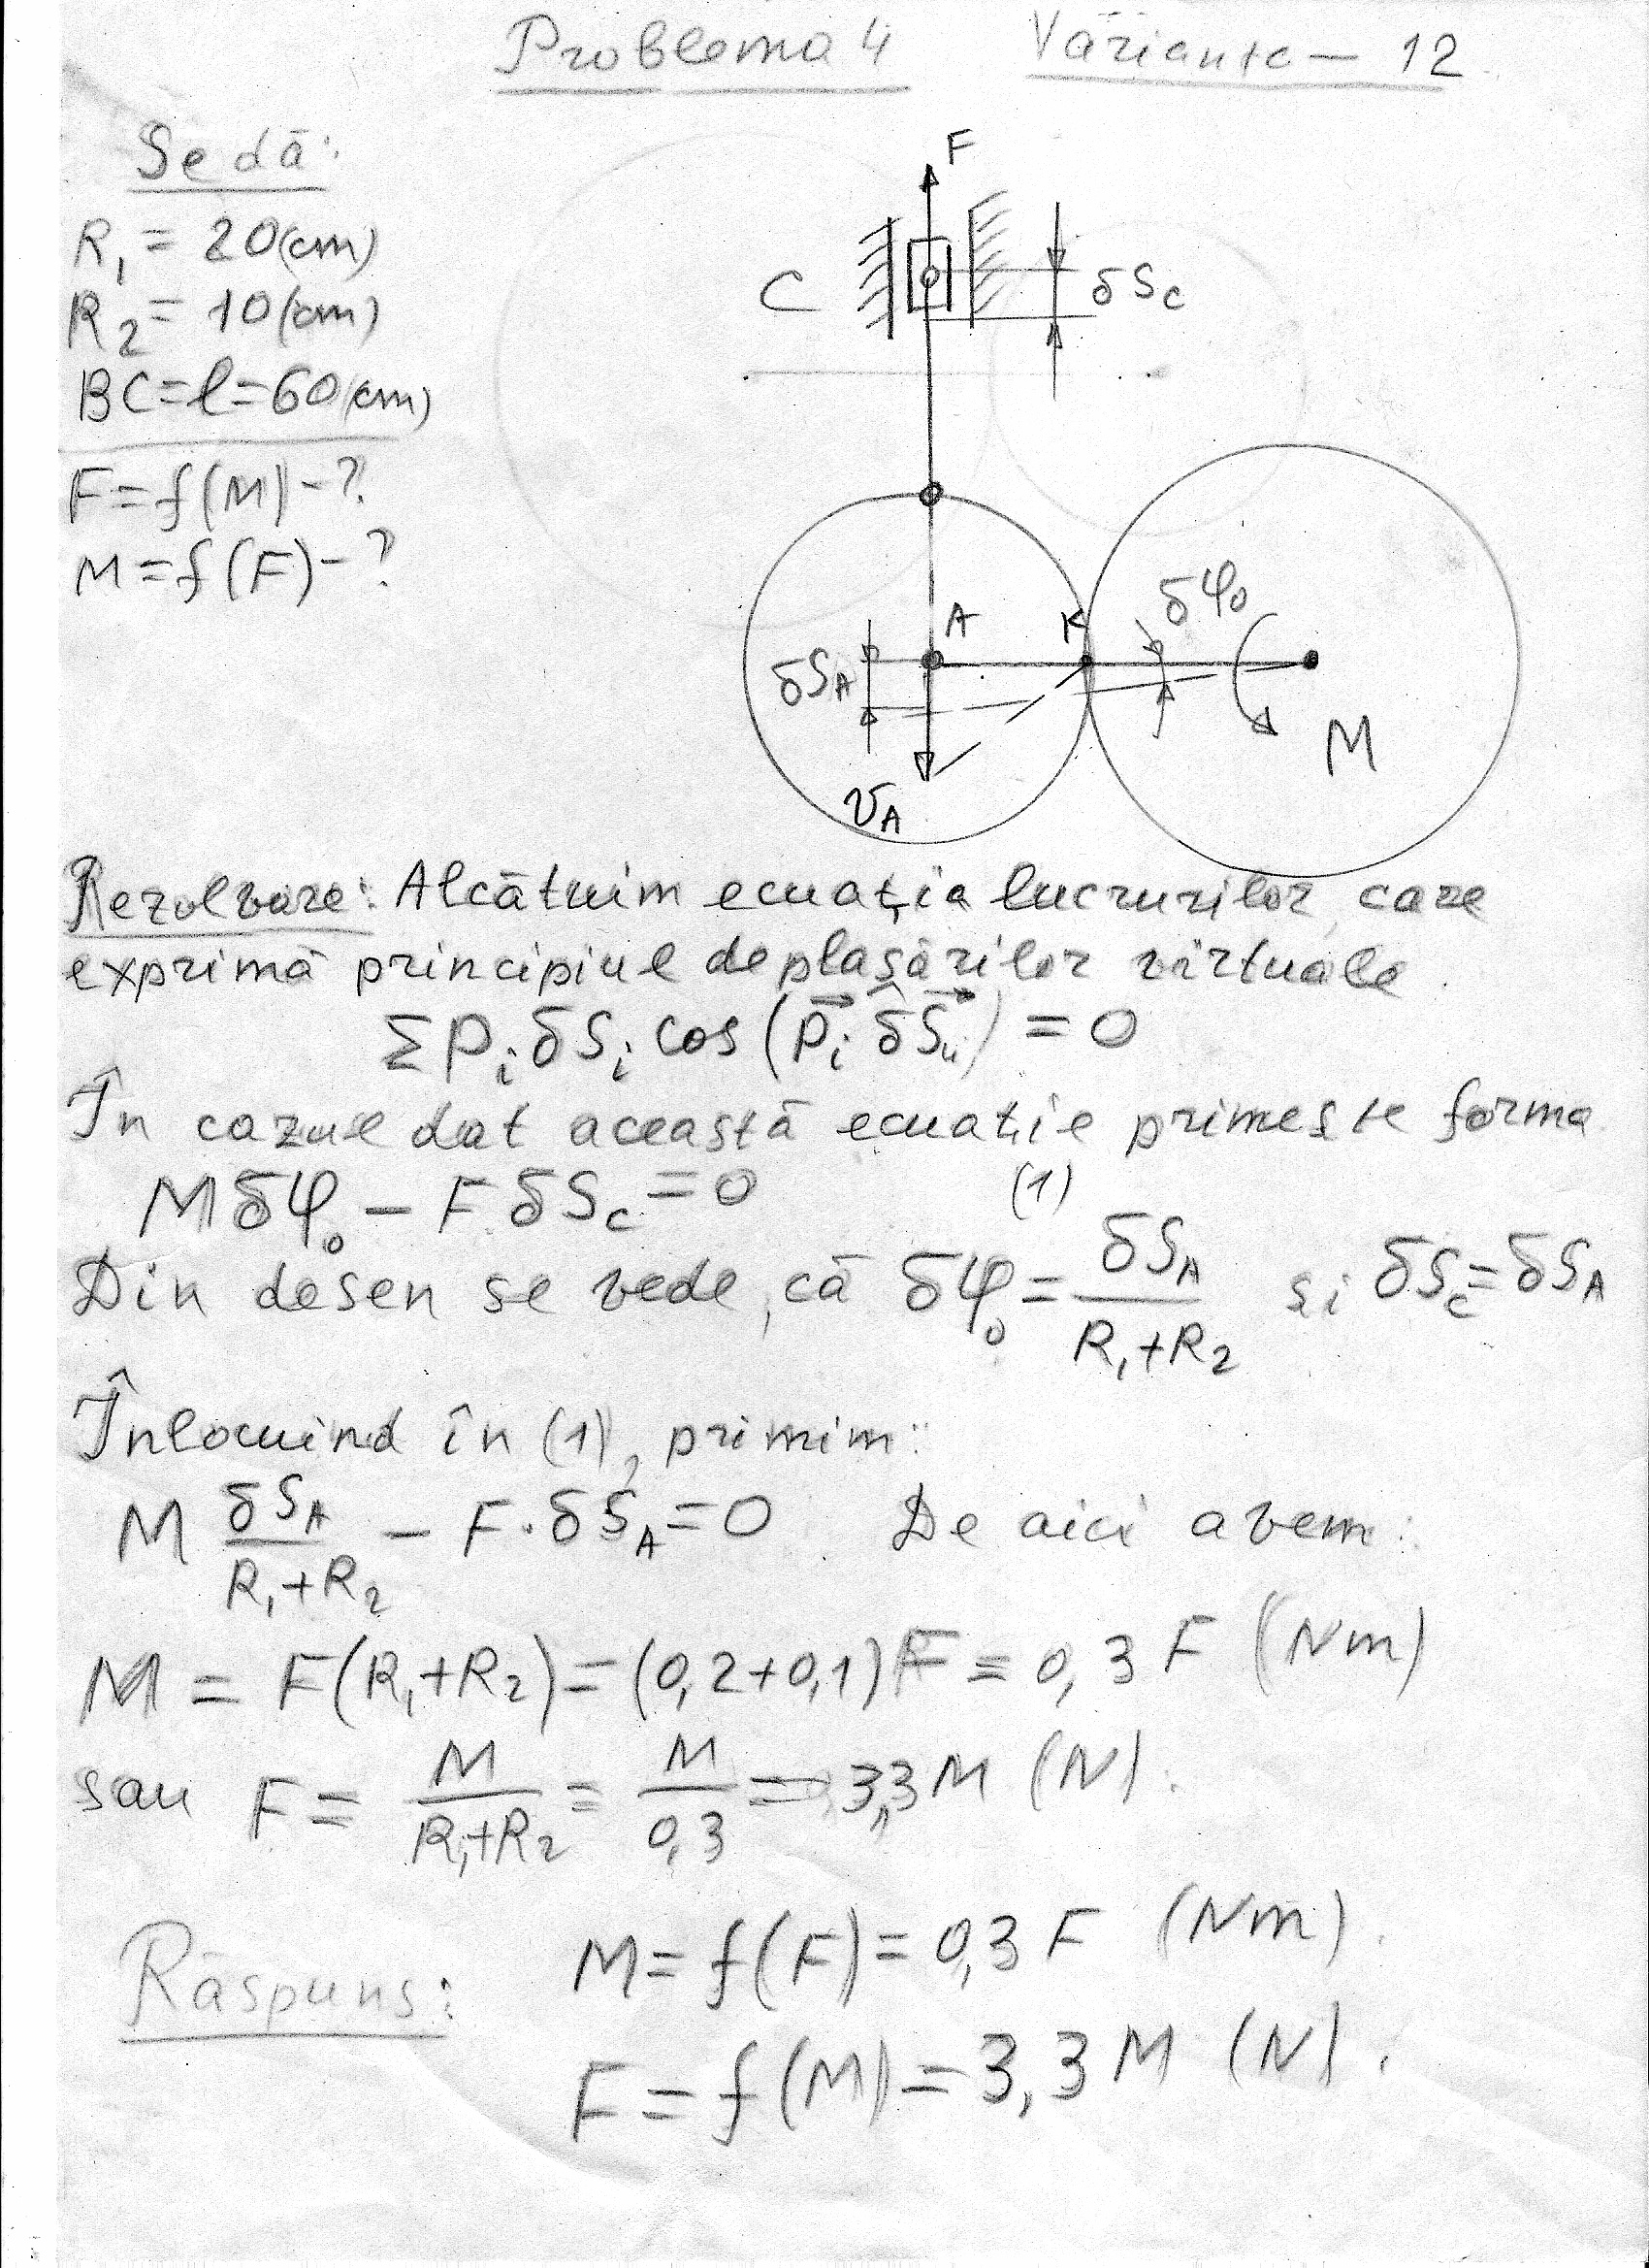 Problema 4 Varianta - 12
Se dă:
R₁ = 20(cm)
R₂ = 10(cm)
BC=l=60(cm)
F=f(M)-?
M=f(F)-?
F
C
δS_C
A
K
δφ₀
δS_A
M
v_A
Rezolvare: Alcătuim ecuația lucrurilor, care
exprimă principiul deplasărilor virtuale.
Σ Pᵢ δSᵢ cos (P⃗ᵢ ^ δS⃗ᵢᵢ) = 0
În cazul dat această ecuație primește forma
M δφ₀ - F δS_C = 0 (1)
Din desen se vede, că δφ₀ = δS_A / (R₁+R₂) și δS_C = δS_A
Înlocuind în (1), primim:
M δS_A / (R₁+R₂) - F·δS_A = 0. De aici avem:
M = F(R₁+R₂) = (0,2+0,1)F = 0,3 F (Nm)
sau F = M / (R₁+R₂) = M / 0,3 = 3,3 M (N).
Răspuns: M = f(F) = 0,3 F (Nm).
F = f(M) = 3,3 M (N).